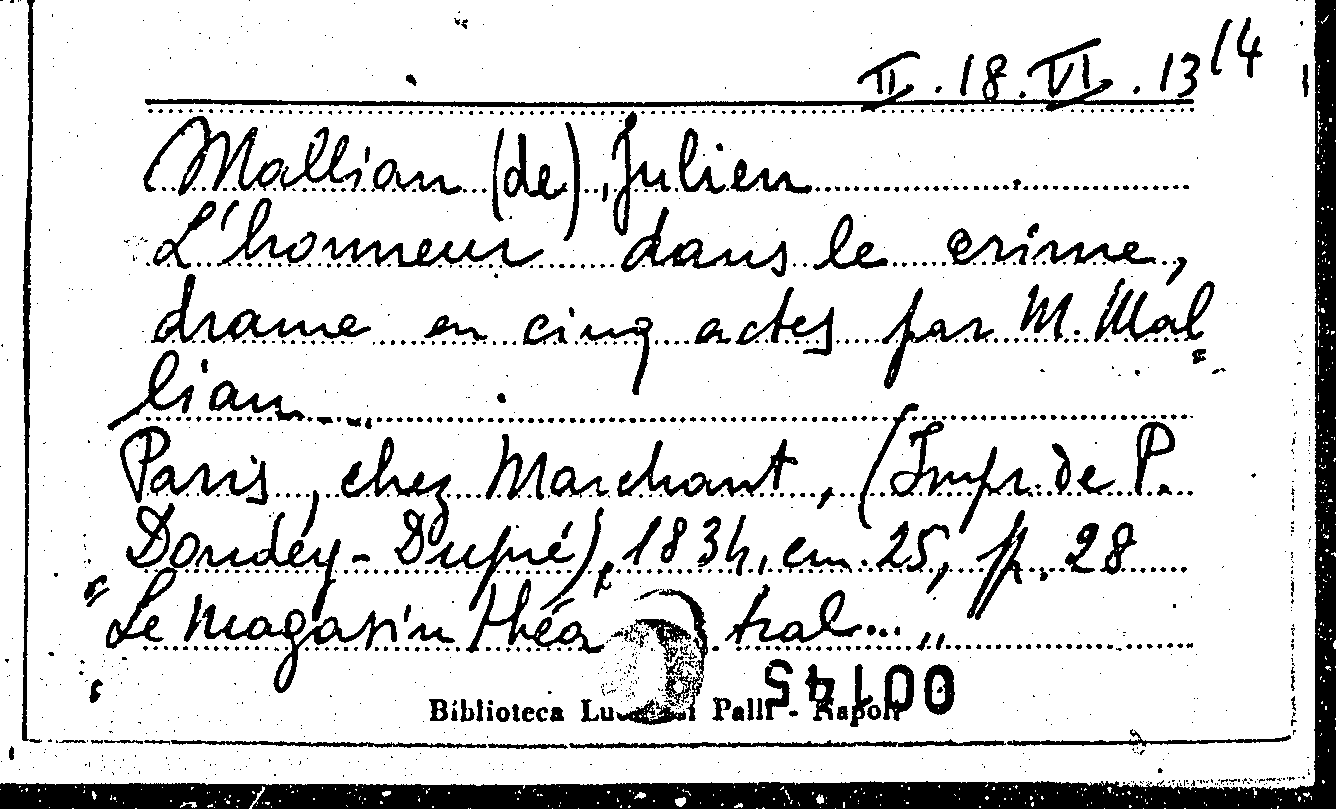 II.18.VI.13/14
Mallian (de), Julien
L'honneur dans le crime,
drame en cinq actes par M. Mal
lian
Paris, chez Marchant, (Impr. de P.
Dondey-Dupré), 1834, cm. 25, p. 28
"Le magasin théa tral... "
00145
Biblioteca Palli - Napoli